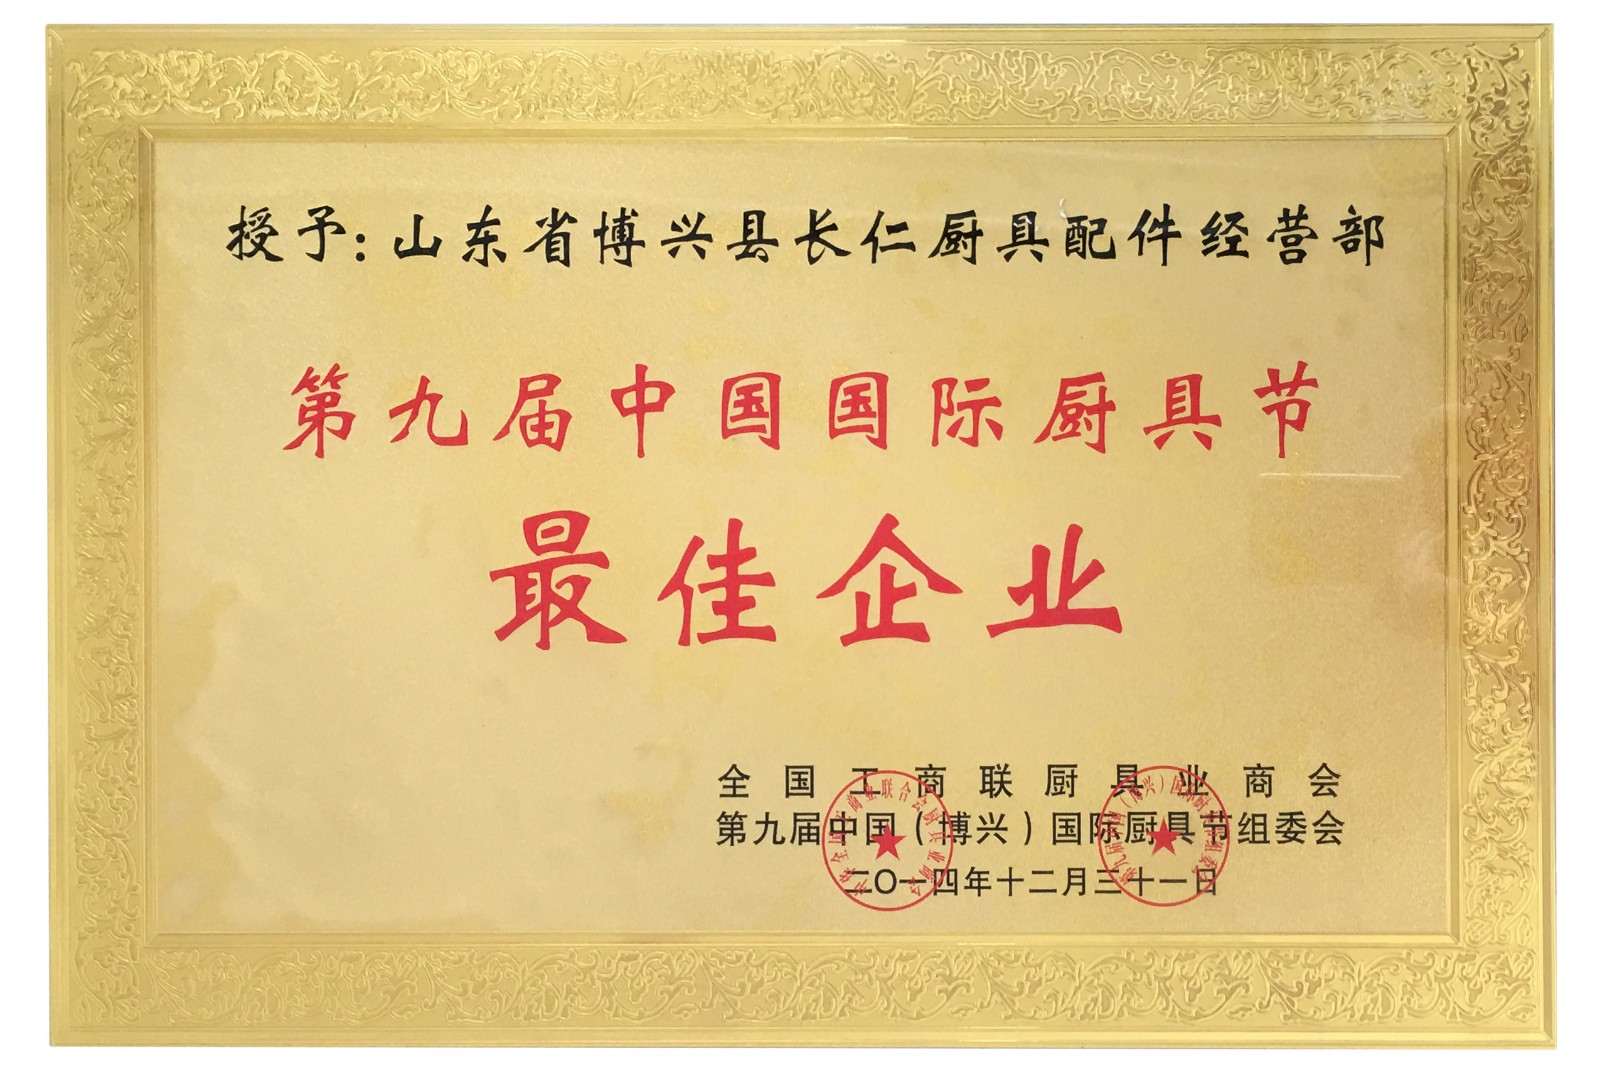 授予：山东省博兴县长仁厨具配件经营部
第九届中国国际厨具节
最佳企业
全国工商联厨具业商会
第九届中国（博兴）国际厨具节组委会
二〇一四年十二月三十一日